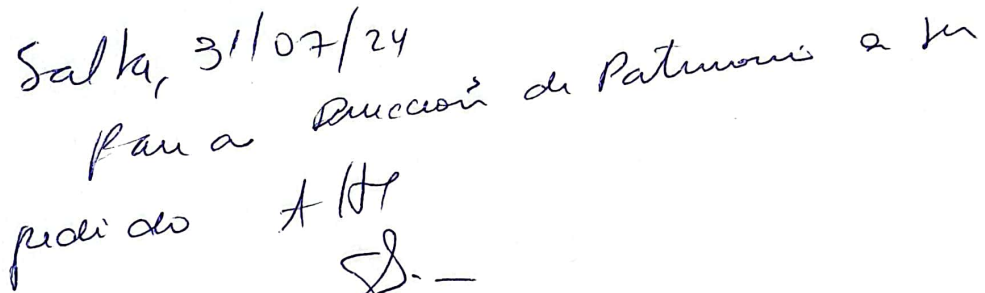 Salta, 31/07/24
Pase a Dirección de Patrimonio a su
pedido